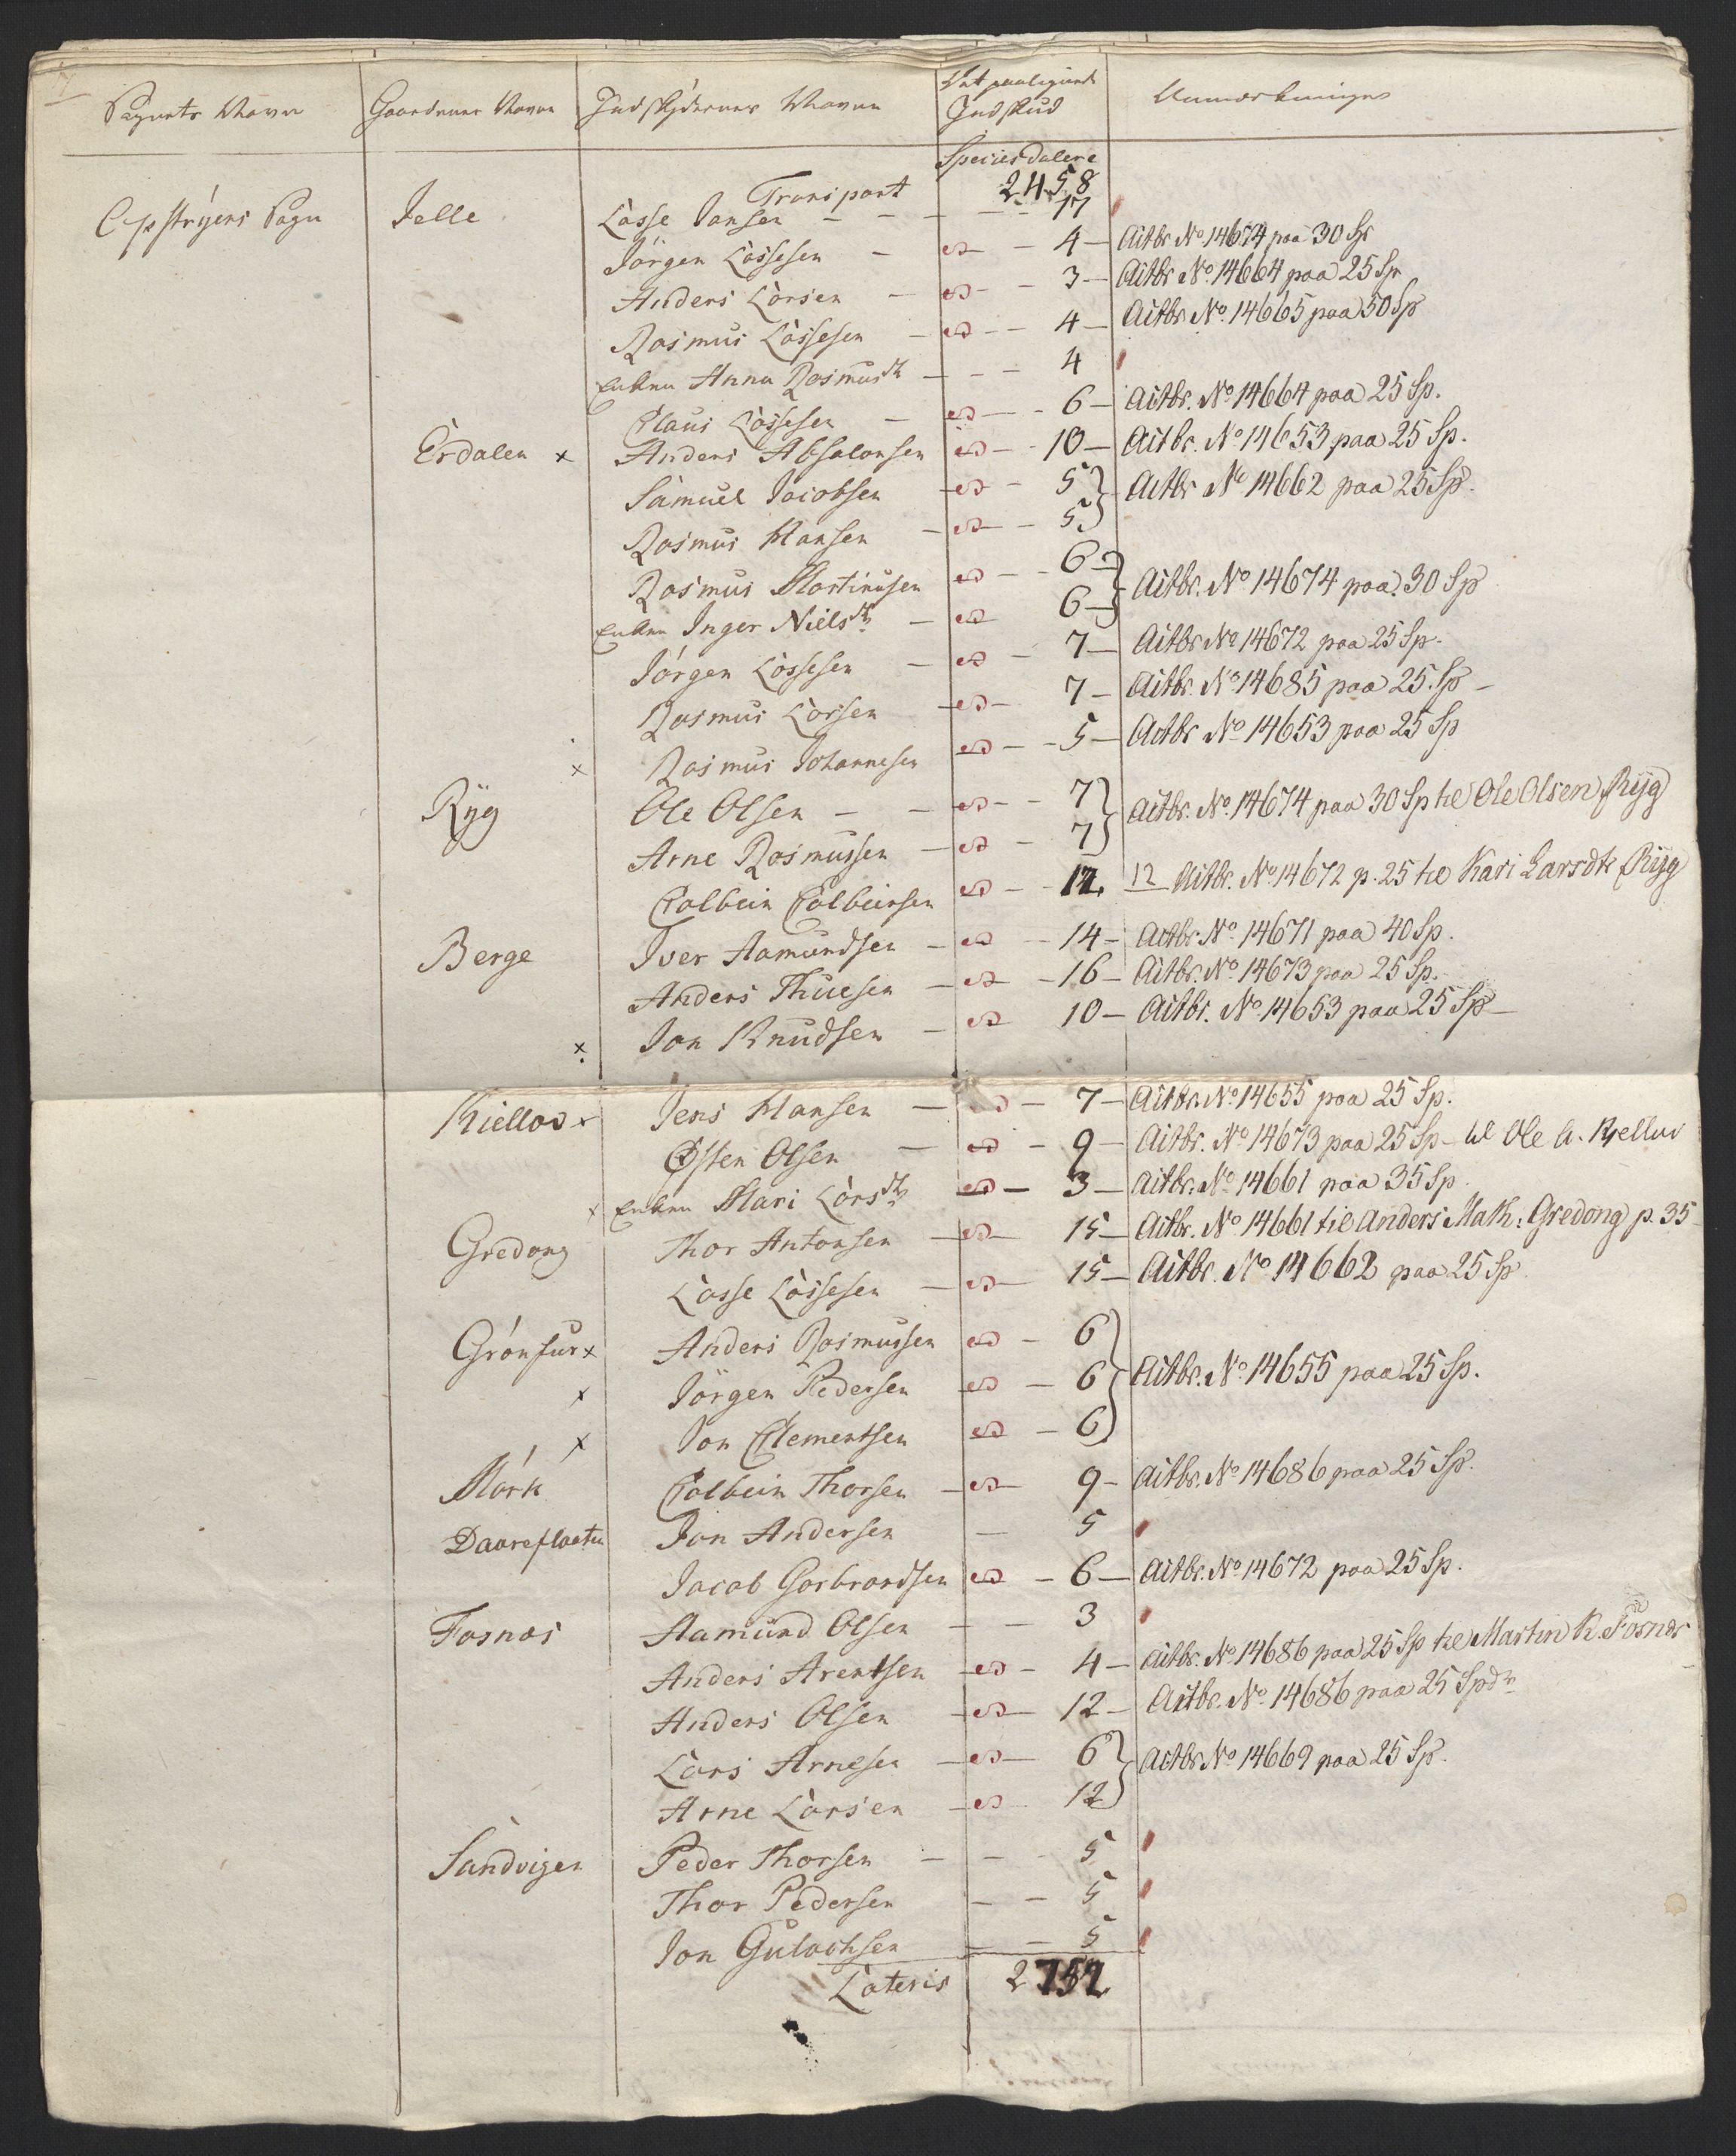 Sognets Navn Gaardenes Navne Indskydernes Navne Det paalignede Indskud Anmærkninger
Species Dalere
Transport 2458
Opstryens Sogn Jelle Lasse Jansen - - - 17
Jörgen Lassesen - - 4 - Actbr No 14674 paa 30 Sp
Anders Larsen - - 3 - Actbr No 14664 paa 25 Sp
Rasmus Lassesen - - 4 - Actbr. No. 14665 paa 50 Sp
Enken Anna Rasmusdtr - - - 4
Claus Lassesen - - 6 - Actbr. No 14664 paa 25 Sp.
Erdalen x Anders Absalonsen - 10 - Actbr. No 14653 paa 25 Sp.
Samuel Jacobsen - 5 } Actbr No 14662 paa 25 Sp.
Rasmus Hansen - - 5
Rasmus Martinusen - 6 } Actbr. No 14674 paa 30 Sp
Enken Inger Nielsdtr - 6
Jörgen Lassesen - - 7 - Actbr No 14672 paa 25 Sp.
Rasmus Larsen - 7 - Actbr. No 14685 paa 25 Sp -
x Rasmus Johannesen - - 5 - Actbr No 14653 paa 25 Sp
Ryg Ole Olsen - - - 7 } Actbr. No. 14674 paa 30 Sp til Ole Olsen Ryg
Arne Rasmussen - - 7
Colbein Colbeinsen - - 12. 12 Actbr. No 14672 p. 25 til Kari Larsdtr Ryg
Berge Iver Aamundsen - - 14 - Actbr No 14671 paa 40 Sp.
Anders Thuesen - - 16 - Actbr. No 14673 paa 25 Sp.
x Jon Knudsen - 10 - Actbr. No 14653 paa 25 Sp -
Kiellos x Jens Hansen - - 7 - Actbr. No 14655 paa 25 Sp.
Østen Olsen - - 9 - Actbr. No 14673 paa 25 Sp - til Ole A. Kjellos
x Enken Mari Larsdtr - 3 - Actbr. No 14661 paa 35 Sp
Gredong Thor Antonsen - - 15 - Actbr. No 14661 til Anders Math: Gredong p. 35
Lasse Lassesen - - 15 - Actbr. No 14662 paa 25 Sp
Grönfur x Anders Rasmussen - 6
x Jörgen Pedersen - 6 } Actbr. No 14655 paa 25 Sp.
x Jon Clementsen - 6
Mörk Colbein Thorsen - 9 - Actbr. No 14686 paa 25 Sp.
Daareflaaten Jon Andersen - 5
Jacob Garbrandsen - 6 - Actbr. No 14672 paa 25 Sp.
Fosnæs Aamund Olsen - - 3
Anders Arentsen - 4 - Actbr. No 14686 paa 25 Sp til Martin K. Fosnæs
Anders Olsen - 12 - Actbr. No 14686 paa 25 Spdr
Lars Arnesen - - 6 } Actbr No 14669 paa 25 Sp.
Arne Larsen - 12
Sandvigen Peder Thorsen - - - 5
Thor Pedersen - - 5
Jon Gulachsen - - 5
Lateris 2752